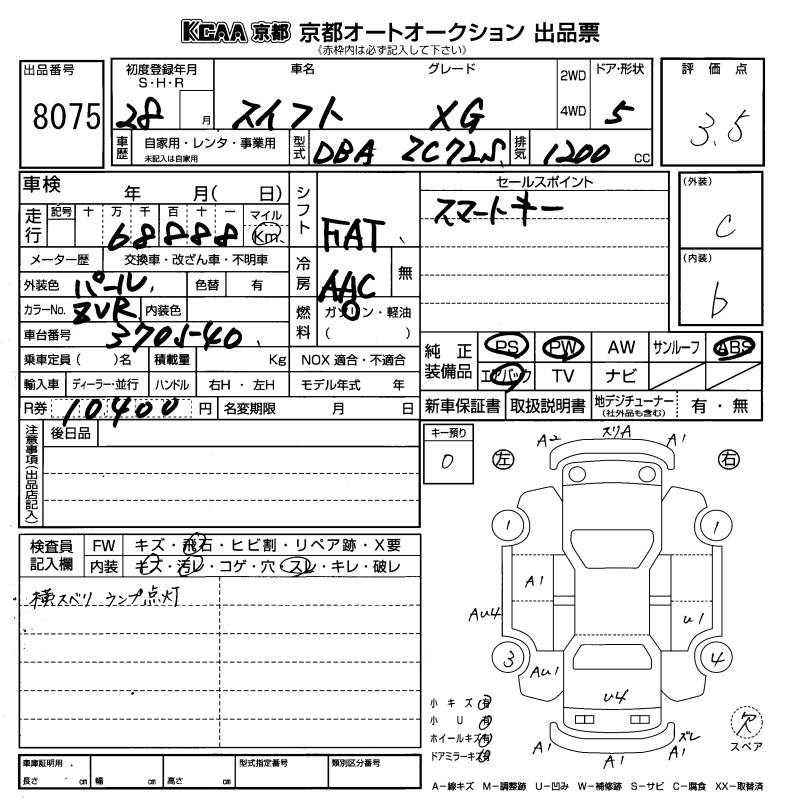 KCAA 京都 京都オートオークション 出品票
(赤枠内は必ず記入して下さい)
出品番号
8075
初度登録年月
S・H・R
28 月
車名
スイフト
グレード
XG
2WD
4WD
ドア・形状
5
評価点
3.5
車歴 自家用・レンタ・事業用
未記入は自家用
型式 DBA ZC72S
排気 1200 CC
車検 年 月( 日)
走行 記号 十 万 千 百 十 一 マイル
68888 Km
メーター歴 交換車・改ざん車・不明車
外装色 パール 色替 有
カラーNo. ZVR 内装色
車台番号 3705-40
乗車定員( )名 積載量 Kg NOX 適合・不適合
輸入車 ディーラー・並行 ハンドル 右H・左H モデル年式 年
R券 10400 円 名変期限 月 日
シフト FAT
冷房 AAC 無
燃料 ガソリン・軽油
( )
セールスポイント
スマートキー
(外装)
C
(内装)
b
純正装備品 PS PW AW サンルーフ ABS
エアバック TV ナビ
新車保証書 取扱説明書 地デジチューナー(社外品も含む) 有・無
注意事項(出品店記入)
後日品
キー預り
0
検査員記入欄
FW キズ・飛石・ヒビ割・リペア跡・X要
内装 キズ・汚レ・コゲ・穴・スレ・キレ・破レ
横スベリ ランプ点灯
左 右
A2 スリA A1
1 1
A1
AU4 U1
3 AU1 4
U4
A1 A1 A1 ズレ
小キズ(有)
小U(有)
ホイールキズ(有)
ドアミラーキズ(有)
欠
スペア
車庫証明用
長さ cm 幅 cm 高さ cm
型式指定番号
類別区分番号
A-線キズ M-調整跡 U-凹み W-補修跡 S-サビ C-腐食 XX-取替済